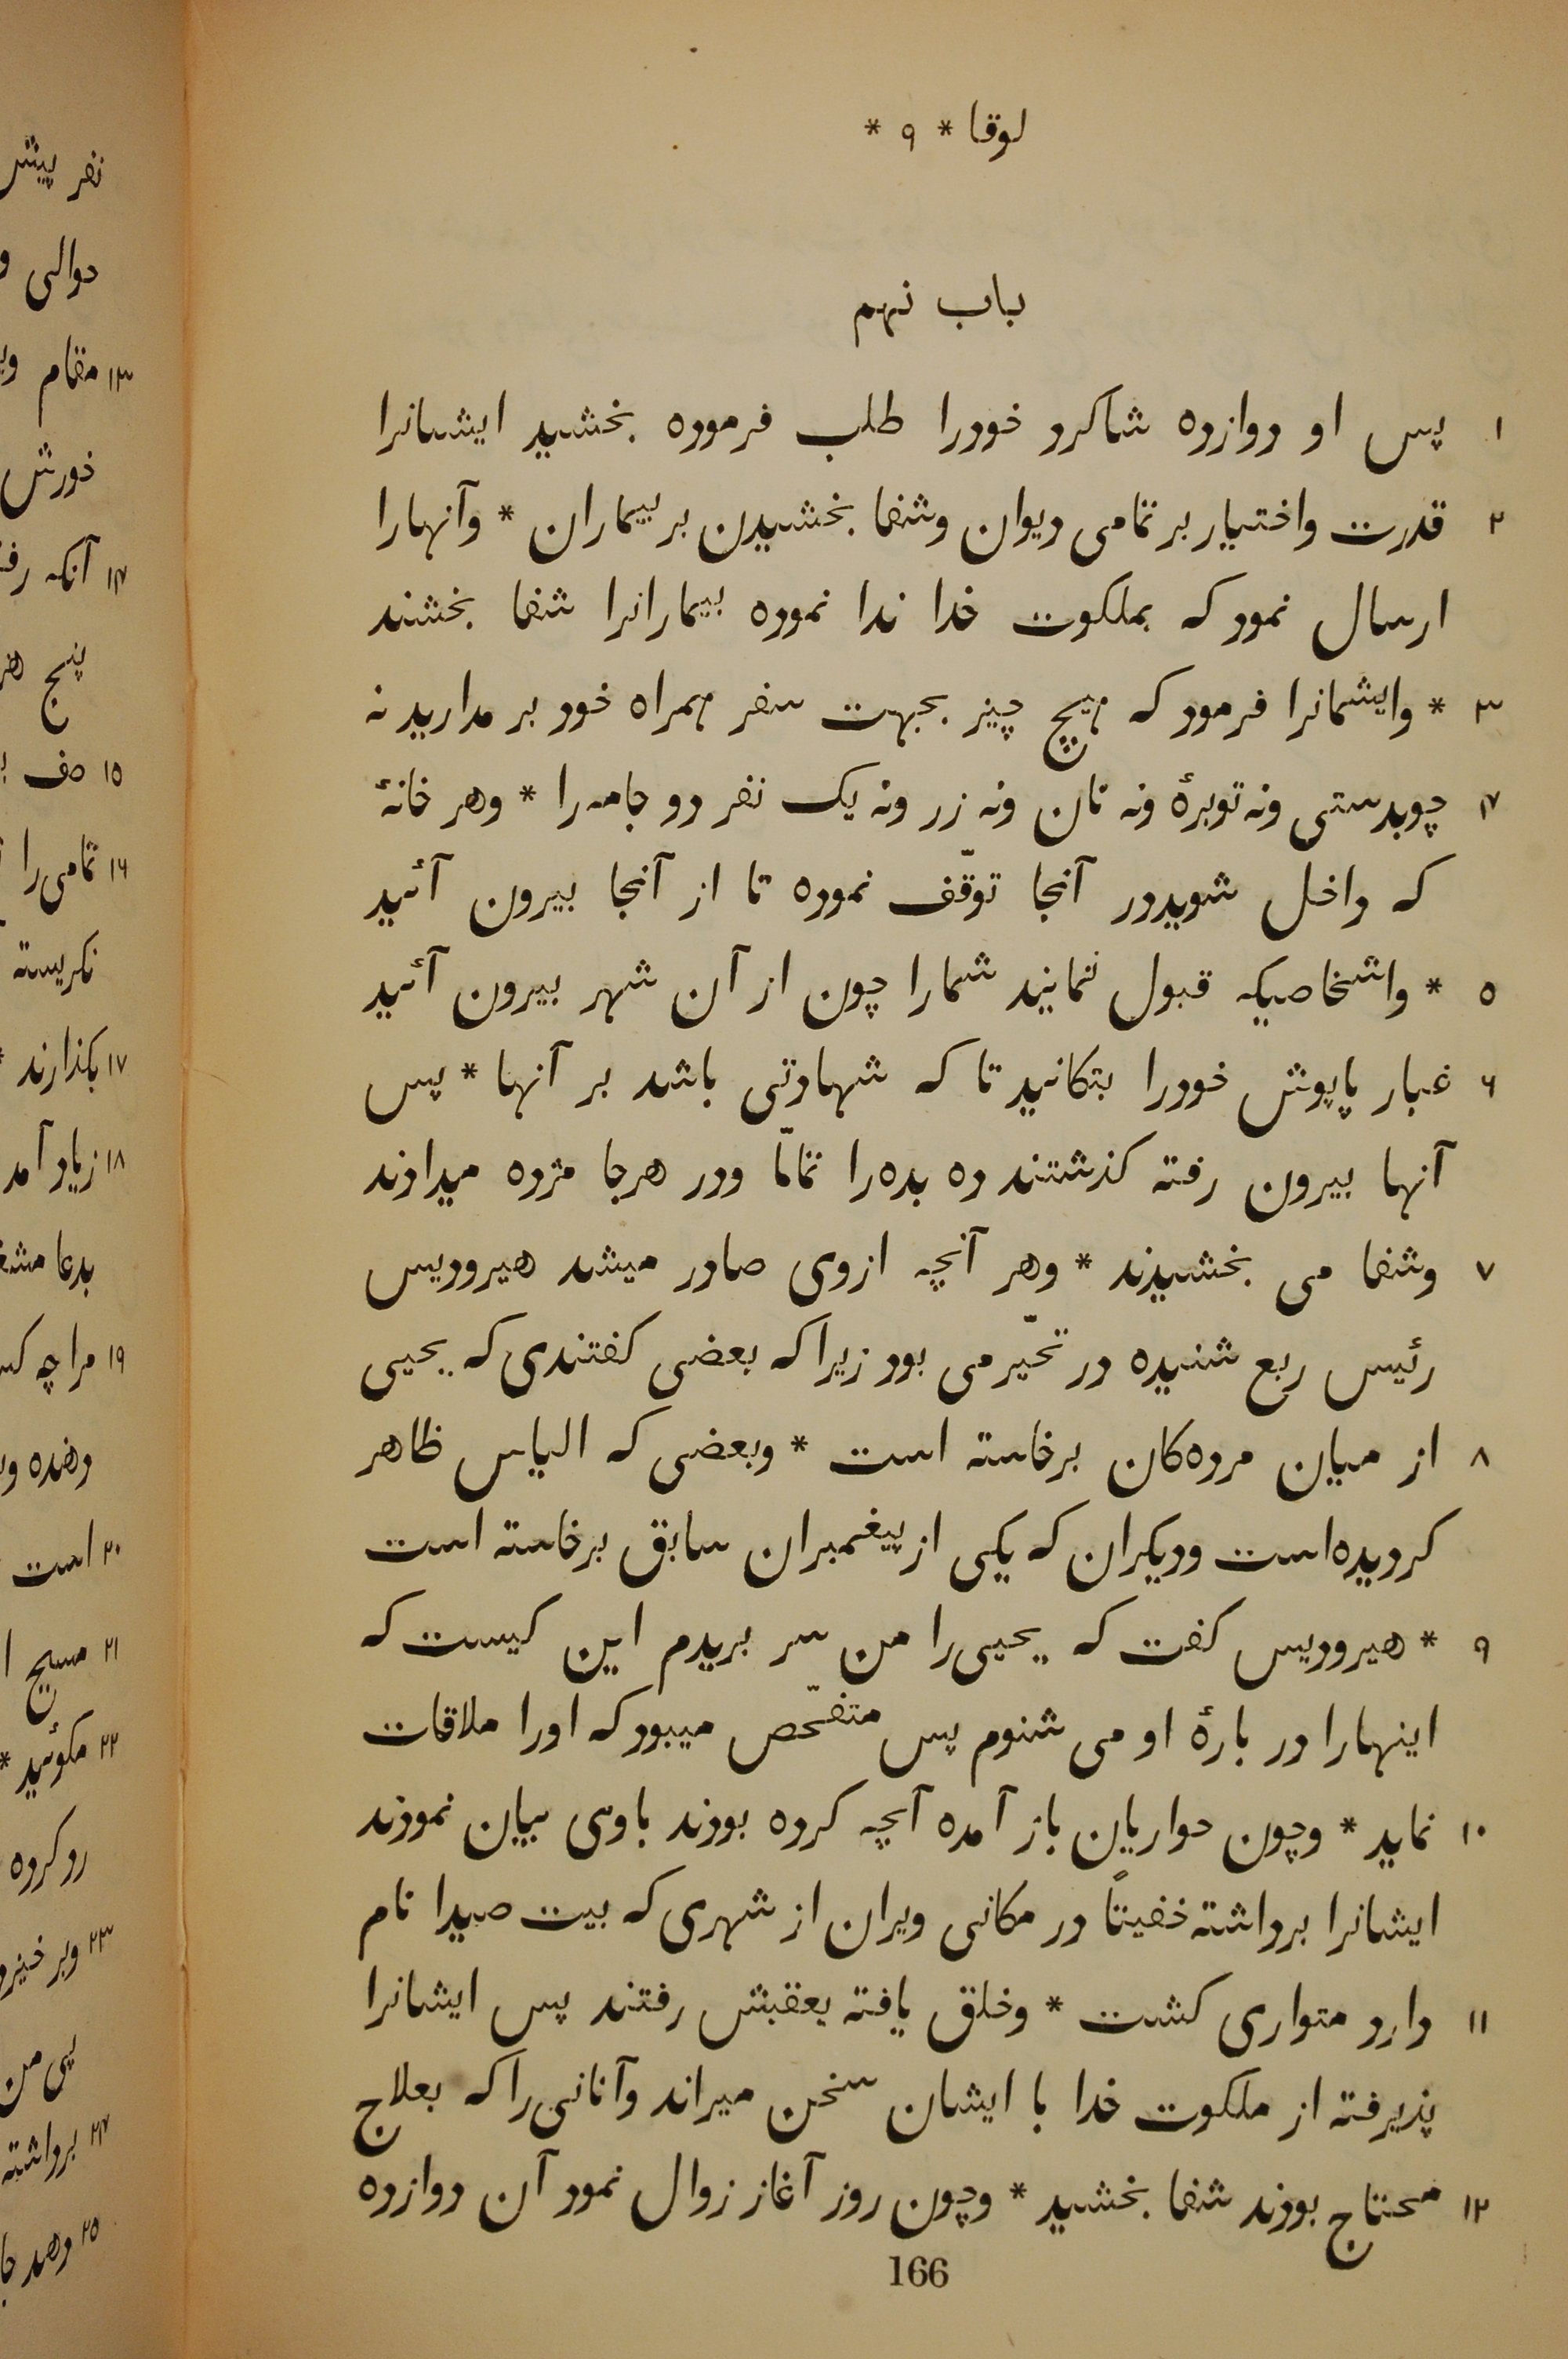 لوقا * ۹ *
باب نهم
۱ پس او دوازده شاکرد خودرا طلب فرموده بخشید ایشانرا
۲ قدرت واختیار بر تمامی دیوان وشفا بخشیدن بر بیماران * وآنهارا
ارسال نمود که بملکوت خدا ندا نموده بیمارانرا شفا بخشند
۳ * وایشانرا فرمود که هیچ چیز بجهت سفر همراه خود بر مدارید نه
۴ چوبدستی ونه توبرهٔ ونه نان ونه زر ونه یک نفر دو جامه را * وهر خانهٔ
که داخل شوید در آنجا توقّف نموده تا از آنجا بیرون آئید
۵ * واشخاصیکه قبول ننمایند شمارا چون از آن شهر بیرون آئید
۶ غبار پاپوش خودرا بتکانید تا که شهادتی باشد بر آنها * پس
آنها بیرون رفته کذشتند ده بده را تمامّا ودر هرجا مژده میدادند
۷ وشفا می بخشیدند * وهر آنچه ازوی صادر میشد هیرودیس
رئیس ربع شنیده در تحیّر می بود زیرا که بعضی کفتندی که یحیی
۸ از میان مرده‌کان برخاسته است * وبعضی که الیاس ظاهر
کردیده‌است ودیکران که یکی از پیغمبران سابق برخاسته است
۹ * هیرودیس کفت که یحیی را من سر بریدم این کیست که
اینهارا در بارهٔ او می شنوم پس متفحّص میبود که اورا ملاقات
۱۰ نماید * وچون حواریان باز آمده آنچه کرده بودند باوی بیان نمودند
ایشانرا برداشته خفیتاً در مکانی ویران از شهری که بیت صیدا نام
۱۱ دارد متواری کشت * وخلق یافته بعقبش رفتند پس ایشانرا
پذیرفته از ملکوت خدا با ایشان سخن میراند وآنانی را که بعلاج
۱۲ محتاج بودند شفا بخشید * وچون روز آغاز زوال نمود آن دوازده
166
نفر پیش
حوالی و
۱۳ مقام
خورش
۱۴ آنکه
پنج
۱۵ صف
۱۶ تمامی را
نکریسته
۱۷ بکذارند *
۱۸ زیاد آمد
بدعا
۱۹ مرا چه
۲۰ است
۲۱ مسیح
۲۲ مکوئید *
رو کرده
۲۳
پی من
۲۴ برداشته
۲۵ دهد